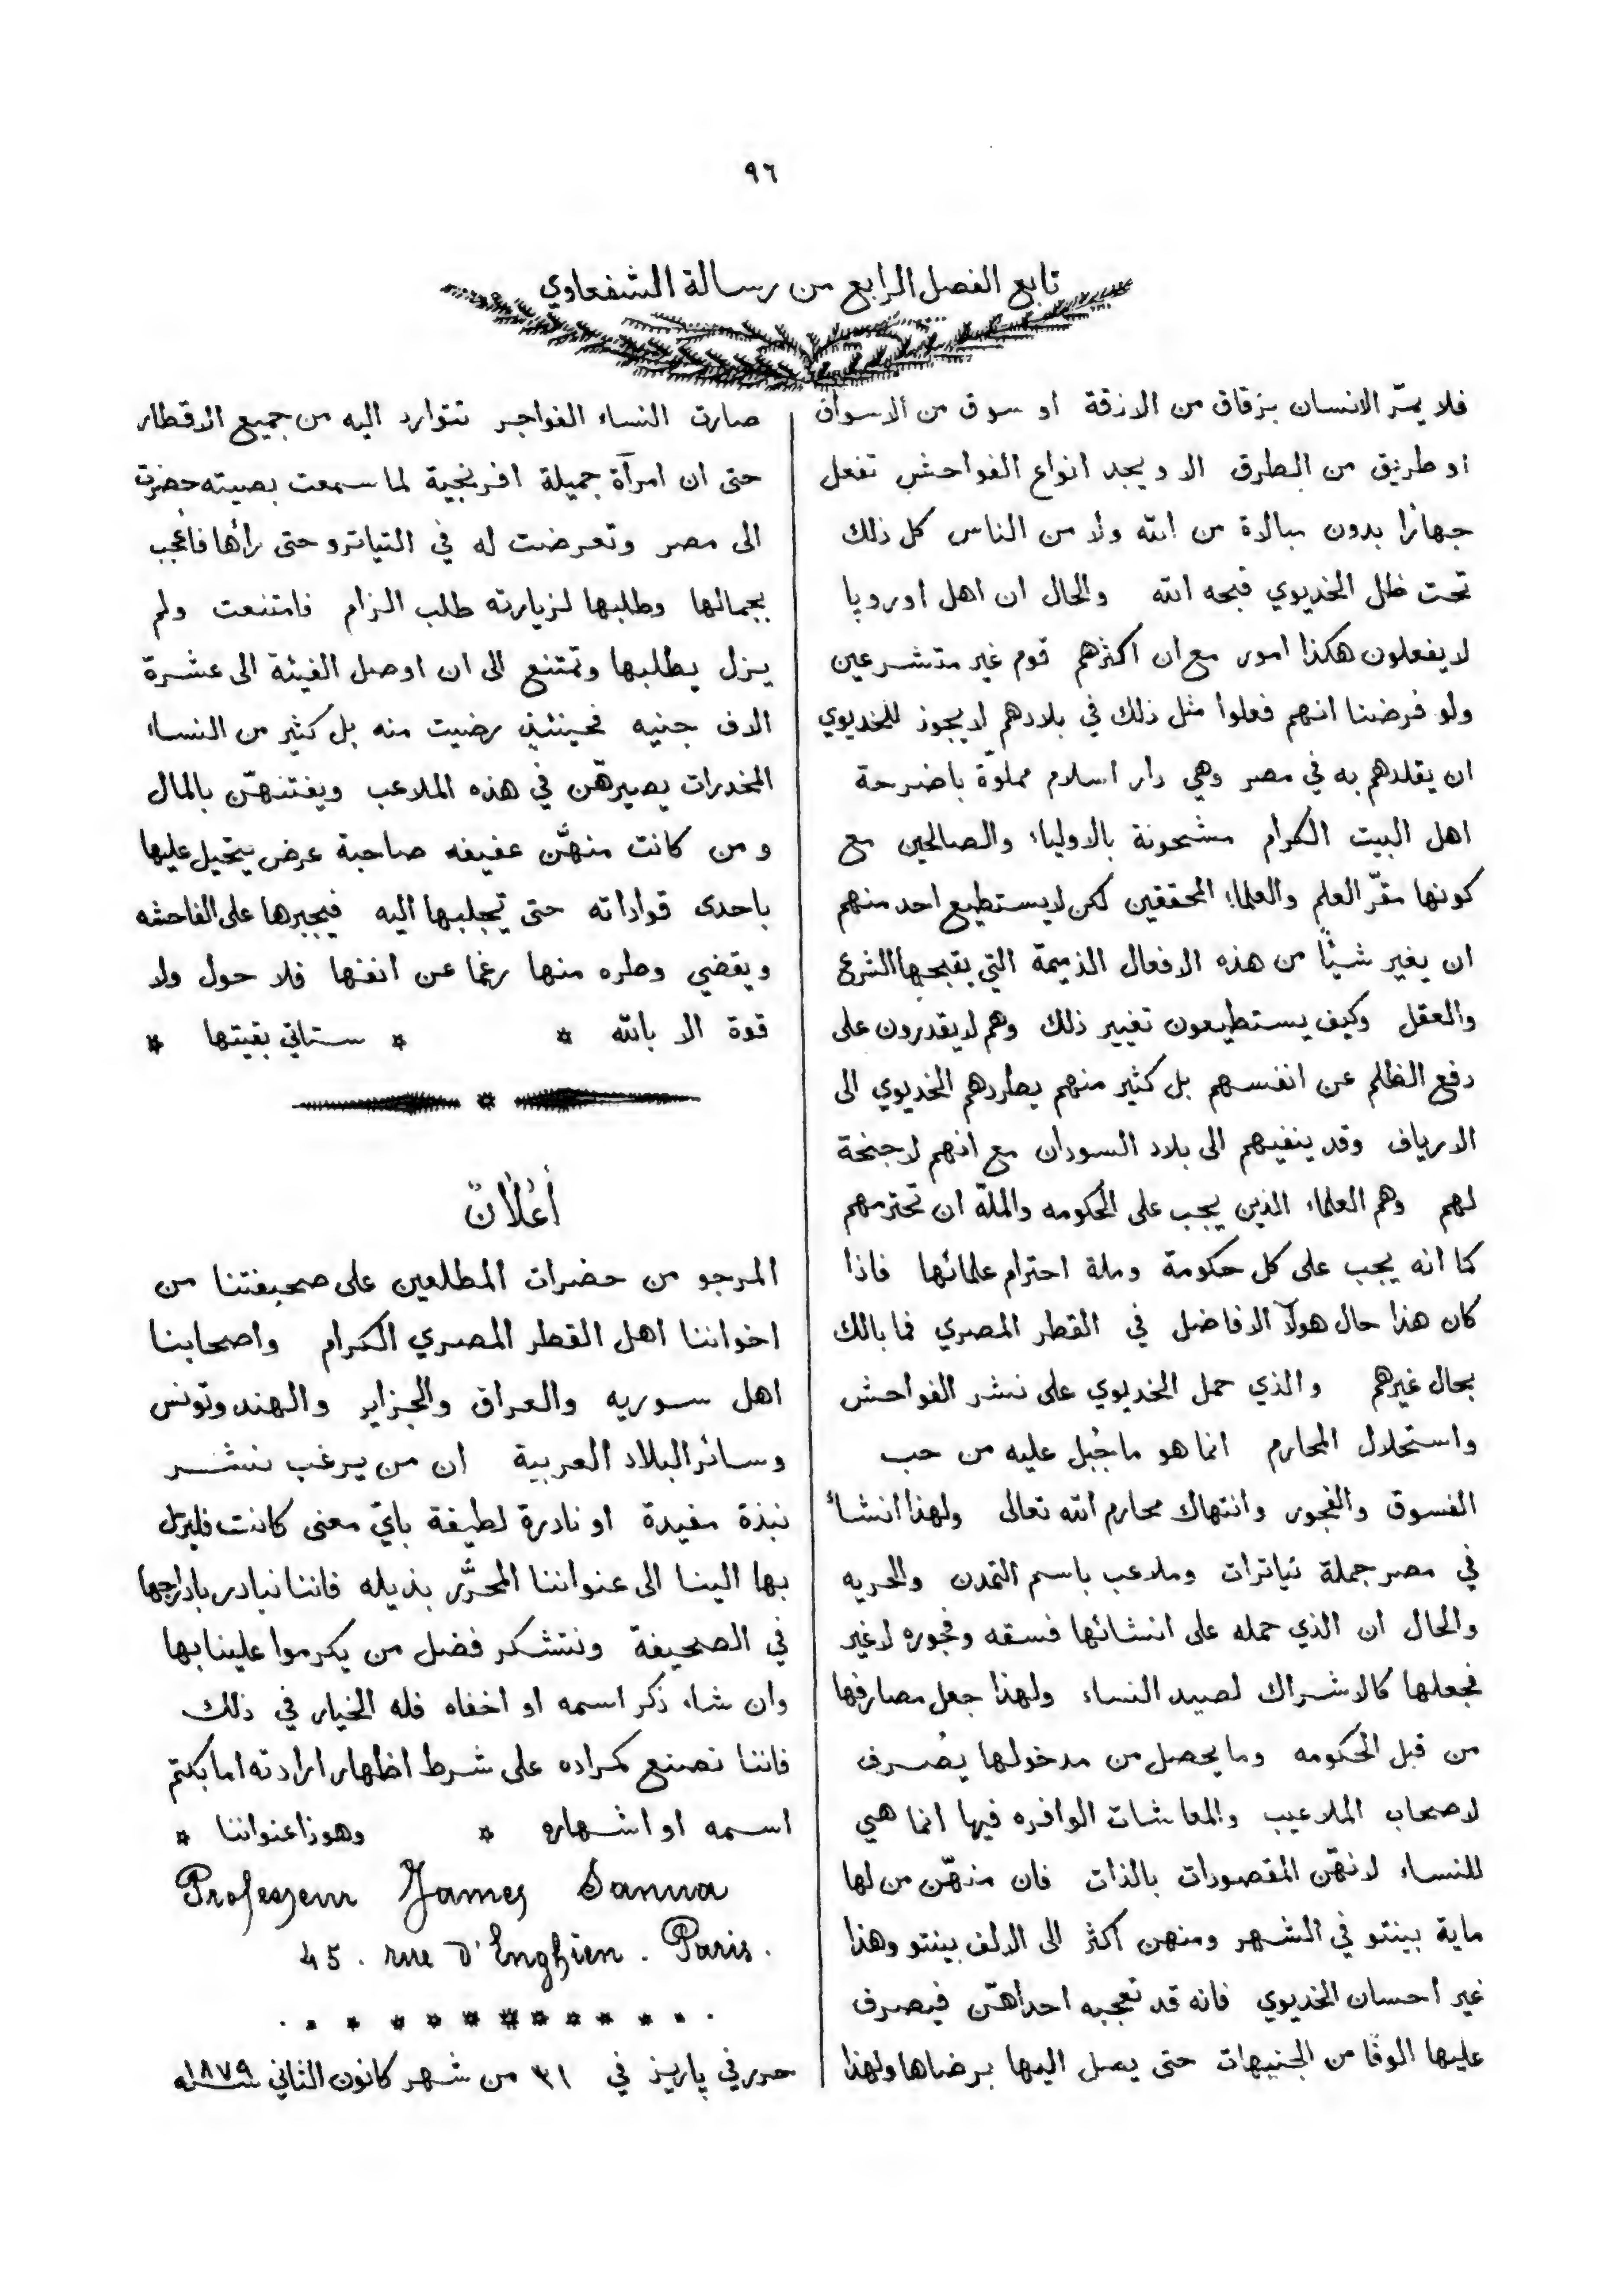 ٩٦
تابع الفصل الرابع من رسالة الشفعاوي
فلا يمرّ الانسان بزقاق من الازقة او سوق من الاسواق
او طريق من الطرق الا ويجد انواع الفواحش تفعل
جهارًا بدون مبالاة من الله ولا من الناس كل ذلك
تحت ظل الخديوي قبحه الله والحال ان اهل اوروپا
لا يفعلون هكذا امور مع ان اكثرهم قوم غير متشرعين
ولو فرضنا انهم فعلوا مثل ذلك في بلادهم لا يجوز للخديوي
ان يقلدهم به في مصر وهي دار اسلام مملوّة باضرحة
اهل البيت الكرام مشحونة بالاولياء والصالحين مع
كونها مقرّ العلم والعلماء المحققين لكن لا يستطيع احد منهم
ان يغير شيئًا من هذه الافعال الذميمة التي يقبحها الشرع
والعقل وكيف يستطيعون تغيير ذلك وهم لا يقدرون على
دفع الظلم عن انفسهم بل كثير منهم يطردهم الخديوي الى
الارياف وقد ينفيهم الى بلاد السودان مع انهم لا جنحة
لهم وهم العلماء الذين يجب على الحكومه والملّة ان تحترمهم
كما انه يجب على كل حكومة وملة احترام علمائها فاذا
كان هذا حال هولآ الافاضل في القطر المصري فما بالك
بحال غيرهم والذي حمل الخديوي على نشر الفواحش
واستحلال المحارم انما هو ما جُبل عليه من حب
الفسوق والفجور وانتهاك محارم الله تعالى ولهذا انشأ
في مصر جملة تياترات وملاعب باسم التمدن والحريه
والحال ان الذي حمله على انشائها فسقه وفجوره لا غير
فجعلها كالاشراك لصيد النساء ولهذا جعل مصارفها
من قبل الحكومه وما يحصل من مدخولها يُصرف
لاصحاب الملاعيب والمعاشات الوافره فيها انما هي
للنساء لانهّن المقصودات بالذات فان منهّن من لها
ماية بينتو في الشهر ومنهن اكثر الى الالف بينتو وهذا
غير احسان الخديوي فانه قد تعجبه احداهّن فيصرف
عليها الوفًا من الجنيهات حتى يصل اليها برضاها ولهذا
صارت النساء الفواجر تتوارد اليه من جميع الاقطار
حتى ان امرآة جميلة افرنجية لما سمعت بصيته حضرت
الى مصر وتعرضت له في التياترو حتى رأها فأعجب
بجمالها وطلبها لزيارته طلب الزام فامتنعت ولم
يزل يطلبها وتمتنع الى ان اوصل الفيئة الى عشرة
الاف جنيه فحينئذٍ رضيت منه بل كثير من النساء
المخدرات يصيرهّن في هذه الملاعب ويفتنهّن بالمال
ومن كانت منهّن عفيفه صاحبة عرض يتحيل عليها
باحدى قواداته حتى تجلبها اليه فيجبرها على الفاحشه
ويقضي وطره منها رغما عن انفها فلا حول ولا
قوة الا بالله * * ستاتي بقيتها *
*
أعلانٌ
المرجو من حضرات المطلعين على صحيفتنا من
اخواننا اهل القطر المصري الكرام واصحابنا
اهل سوريه والعراق والجزاير والهند وتونس
وسائر البلاد العربية ان من يرغب ننشر
نبذة مفيدة او نادرة لطيفة بايّ معنى كانت فليرسل
بها الينا الى عنواننا المحرَّر بذيله فاننا نبادر بادراجها
في الصحيفة ونتشكر فضل من يكرموا علينا بها
وان شاء ذكر اسمه او اخفاه فله الخيار في ذلك
فاننا نصنع كمراده على شرط اظهار ارادته اما بكتم
اسمه او اشهاره * وهوذا عنواننا *
Professeur James Sanua
45. rue d'Enghien. Paris.
حرر في پاريز في ٣١ من شهر كانون الثاني سنه ١٨٧٩